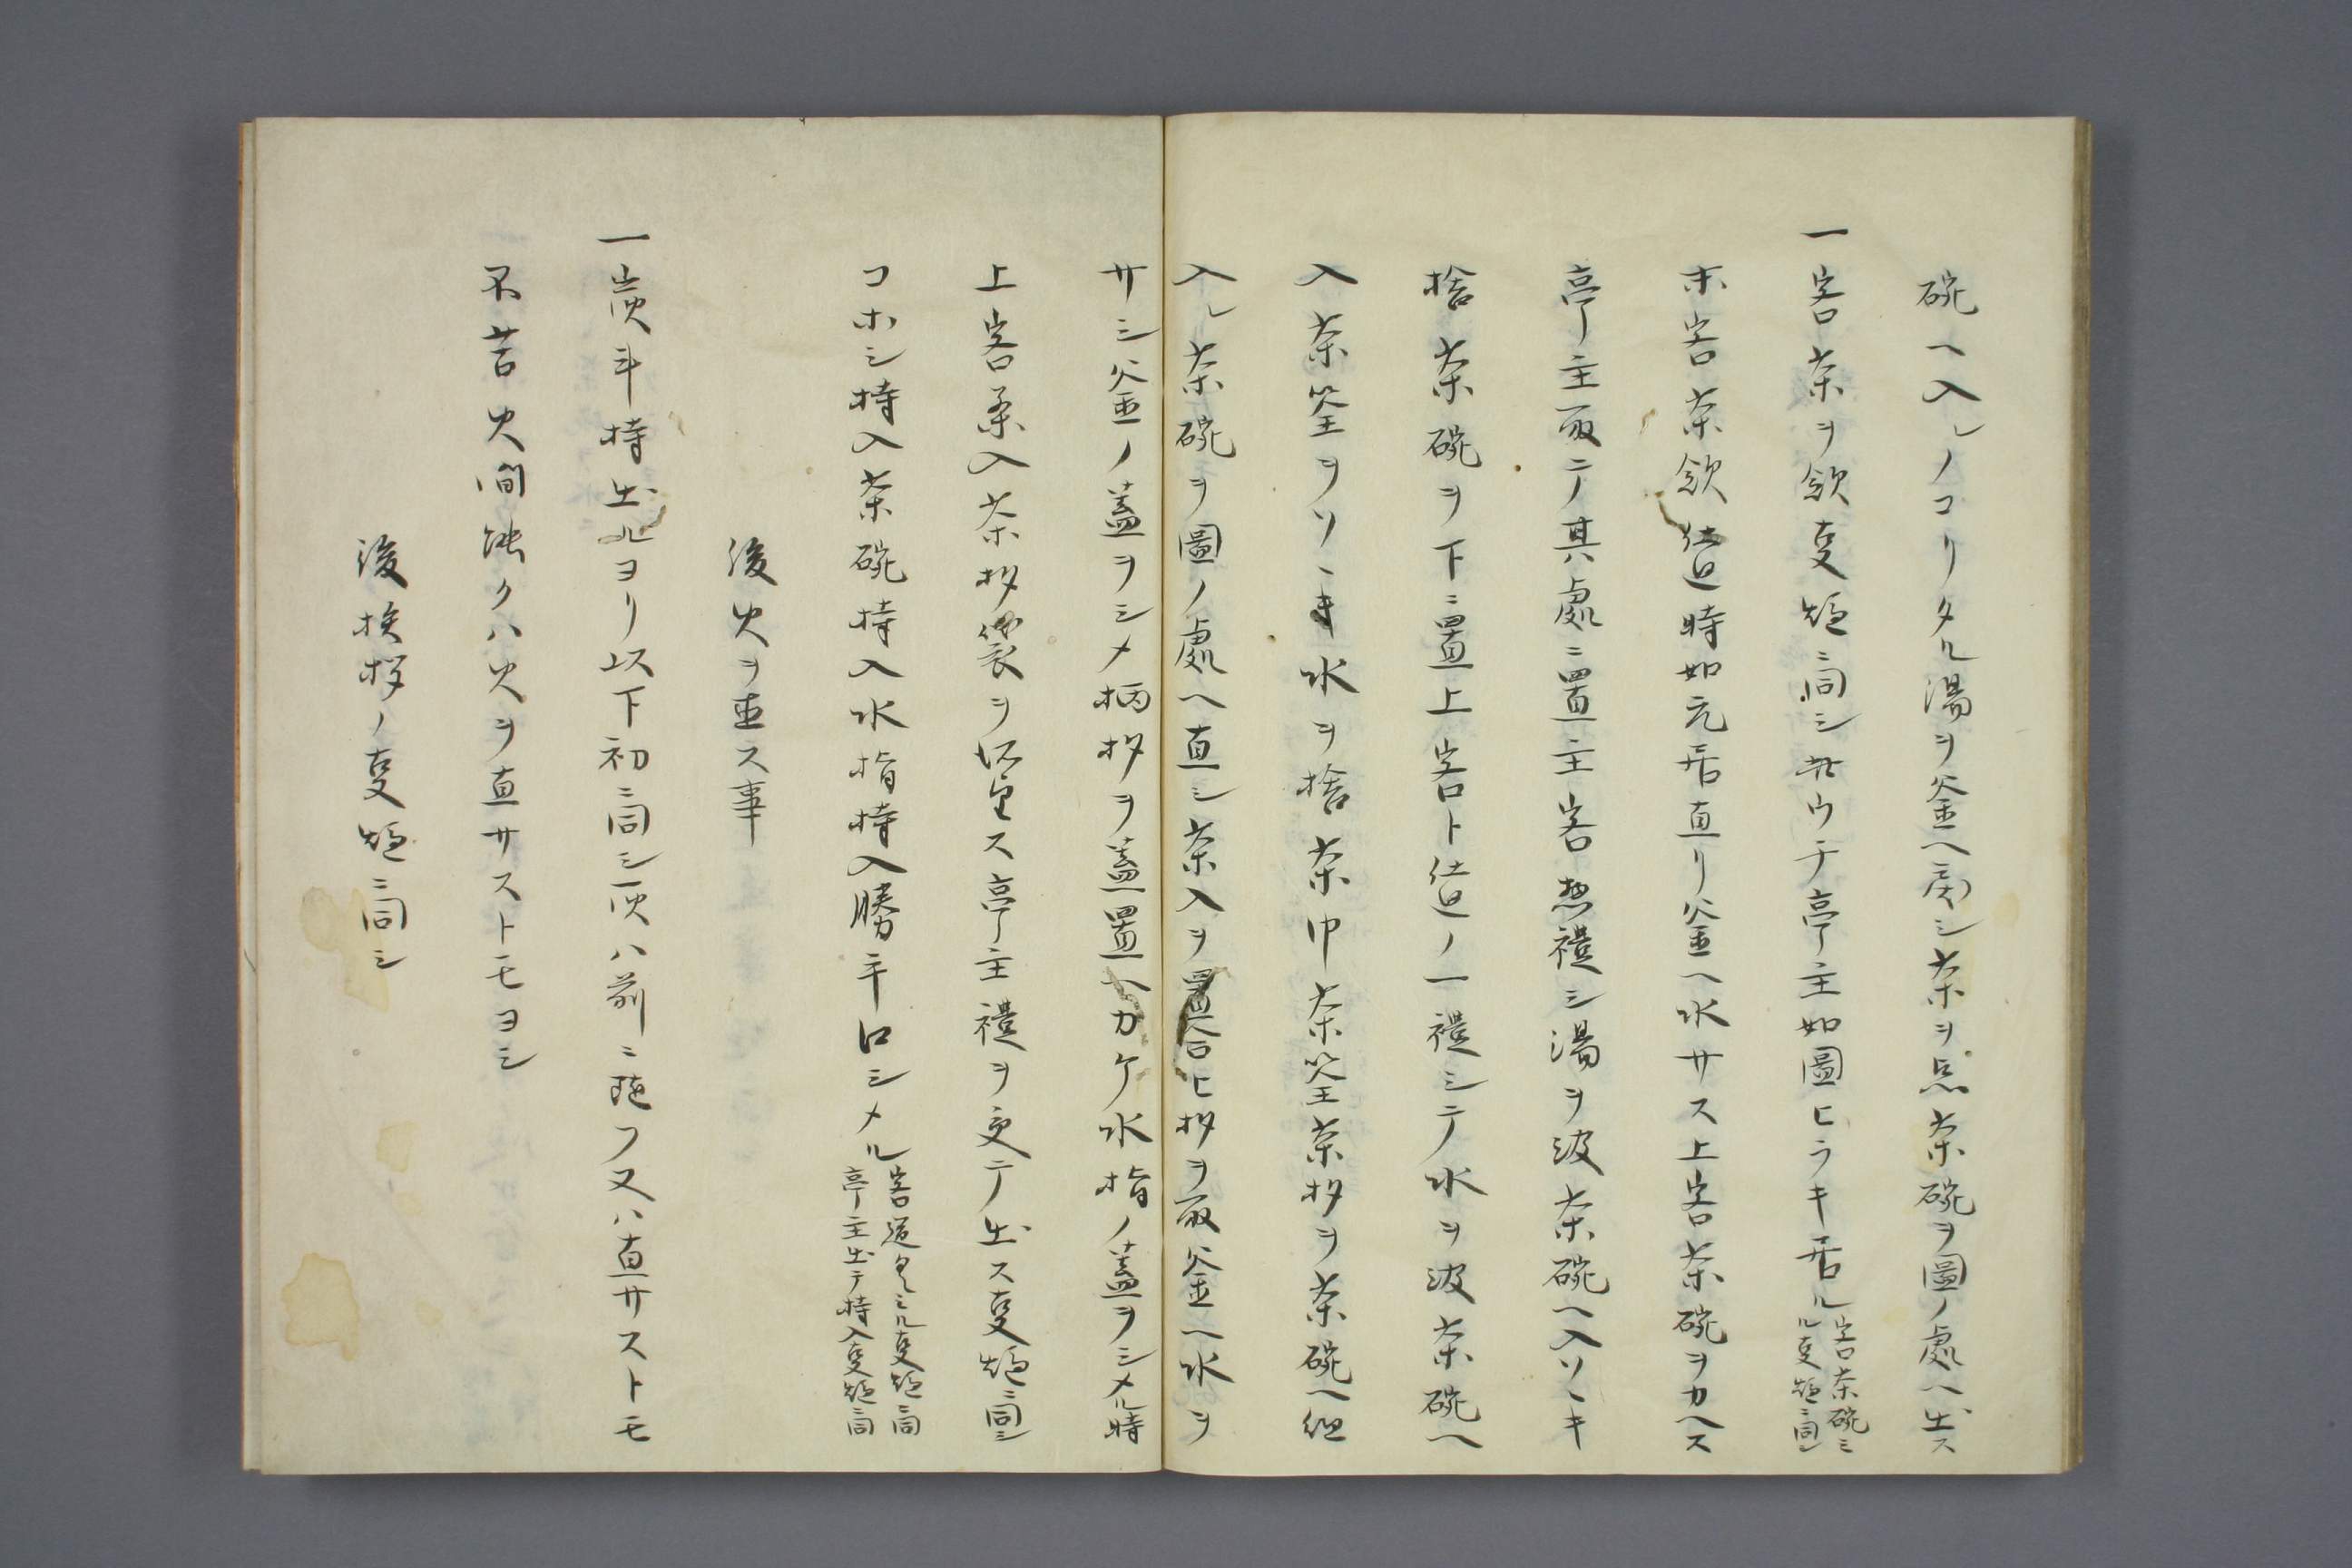 碗ヘ入レノコリタル湯ヲ釜ヘ戻シ茶ヲ点茶碗ヲ圖ノ處ヘ出ス
一客茶ヲ飲事炉ニ同シ此ウチ亭主如圖ヒラキ居ル客茶碗ミル事炉ニ同シ
末客茶飲仕廻時如元居直リ釜ヘ水サス上客茶碗ヲカヘス
亭主取テ其處ニ置主客惣禮シ湯ヲ汲茶碗ヘ入ソヽキ
捨茶碗ヲ下ニ置上客ト仕廻ノ一禮シテ水ヲ汲茶碗ヘ
入茶筌ヲソヽキ水ヲ捨茶巾茶筌茶杓ヲ茶碗ヘ組
入レ茶碗ヲ圖ノ處ヘ直シ茶入ヲ置合ヒ杓ヲ取釜ヘ水ヲ
サシ釜ノ蓋ヲシメ柄杓ヲ蓋置ヘカケ水指ノ蓋ヲシメル時
上客茶入茶杓袋ヲ所望ス亭主禮ヲ受テ出ス事炉ニ同シ
コホシ持入茶碗持入水指持入勝手口シメル客道具ミル事炉ニ同
亭主出テ持入事炉ニ同
後火ヲ直ス事
一炭斗持出ルヨリ以下初ニ同シ灰ハ前ニ蒔フ又ハ直サストモ
不苦火間強クハ火ヲ直サストモヨシ
後挨拶ノ事炉ニ同シ